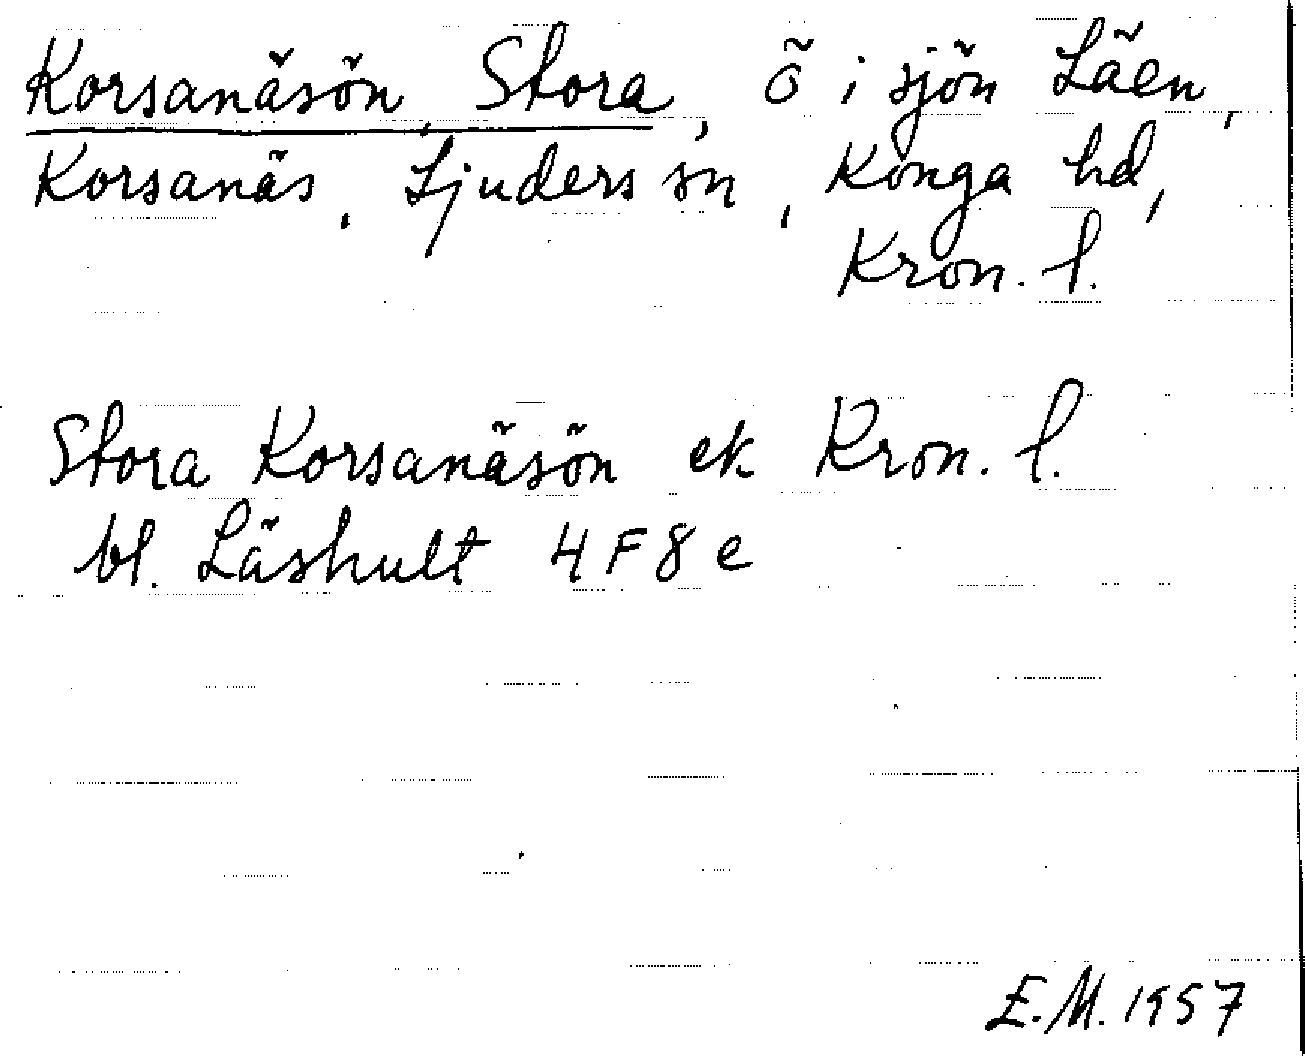 Korsanäsön, Stora, ö i sjön Läen,
Korsanäs, Ljuders sn, Konga hd,
Kron. l.
Stora Korsanäsön ek Kron. l.
bl. Läshult 4 F 8 e
E.M. 1957